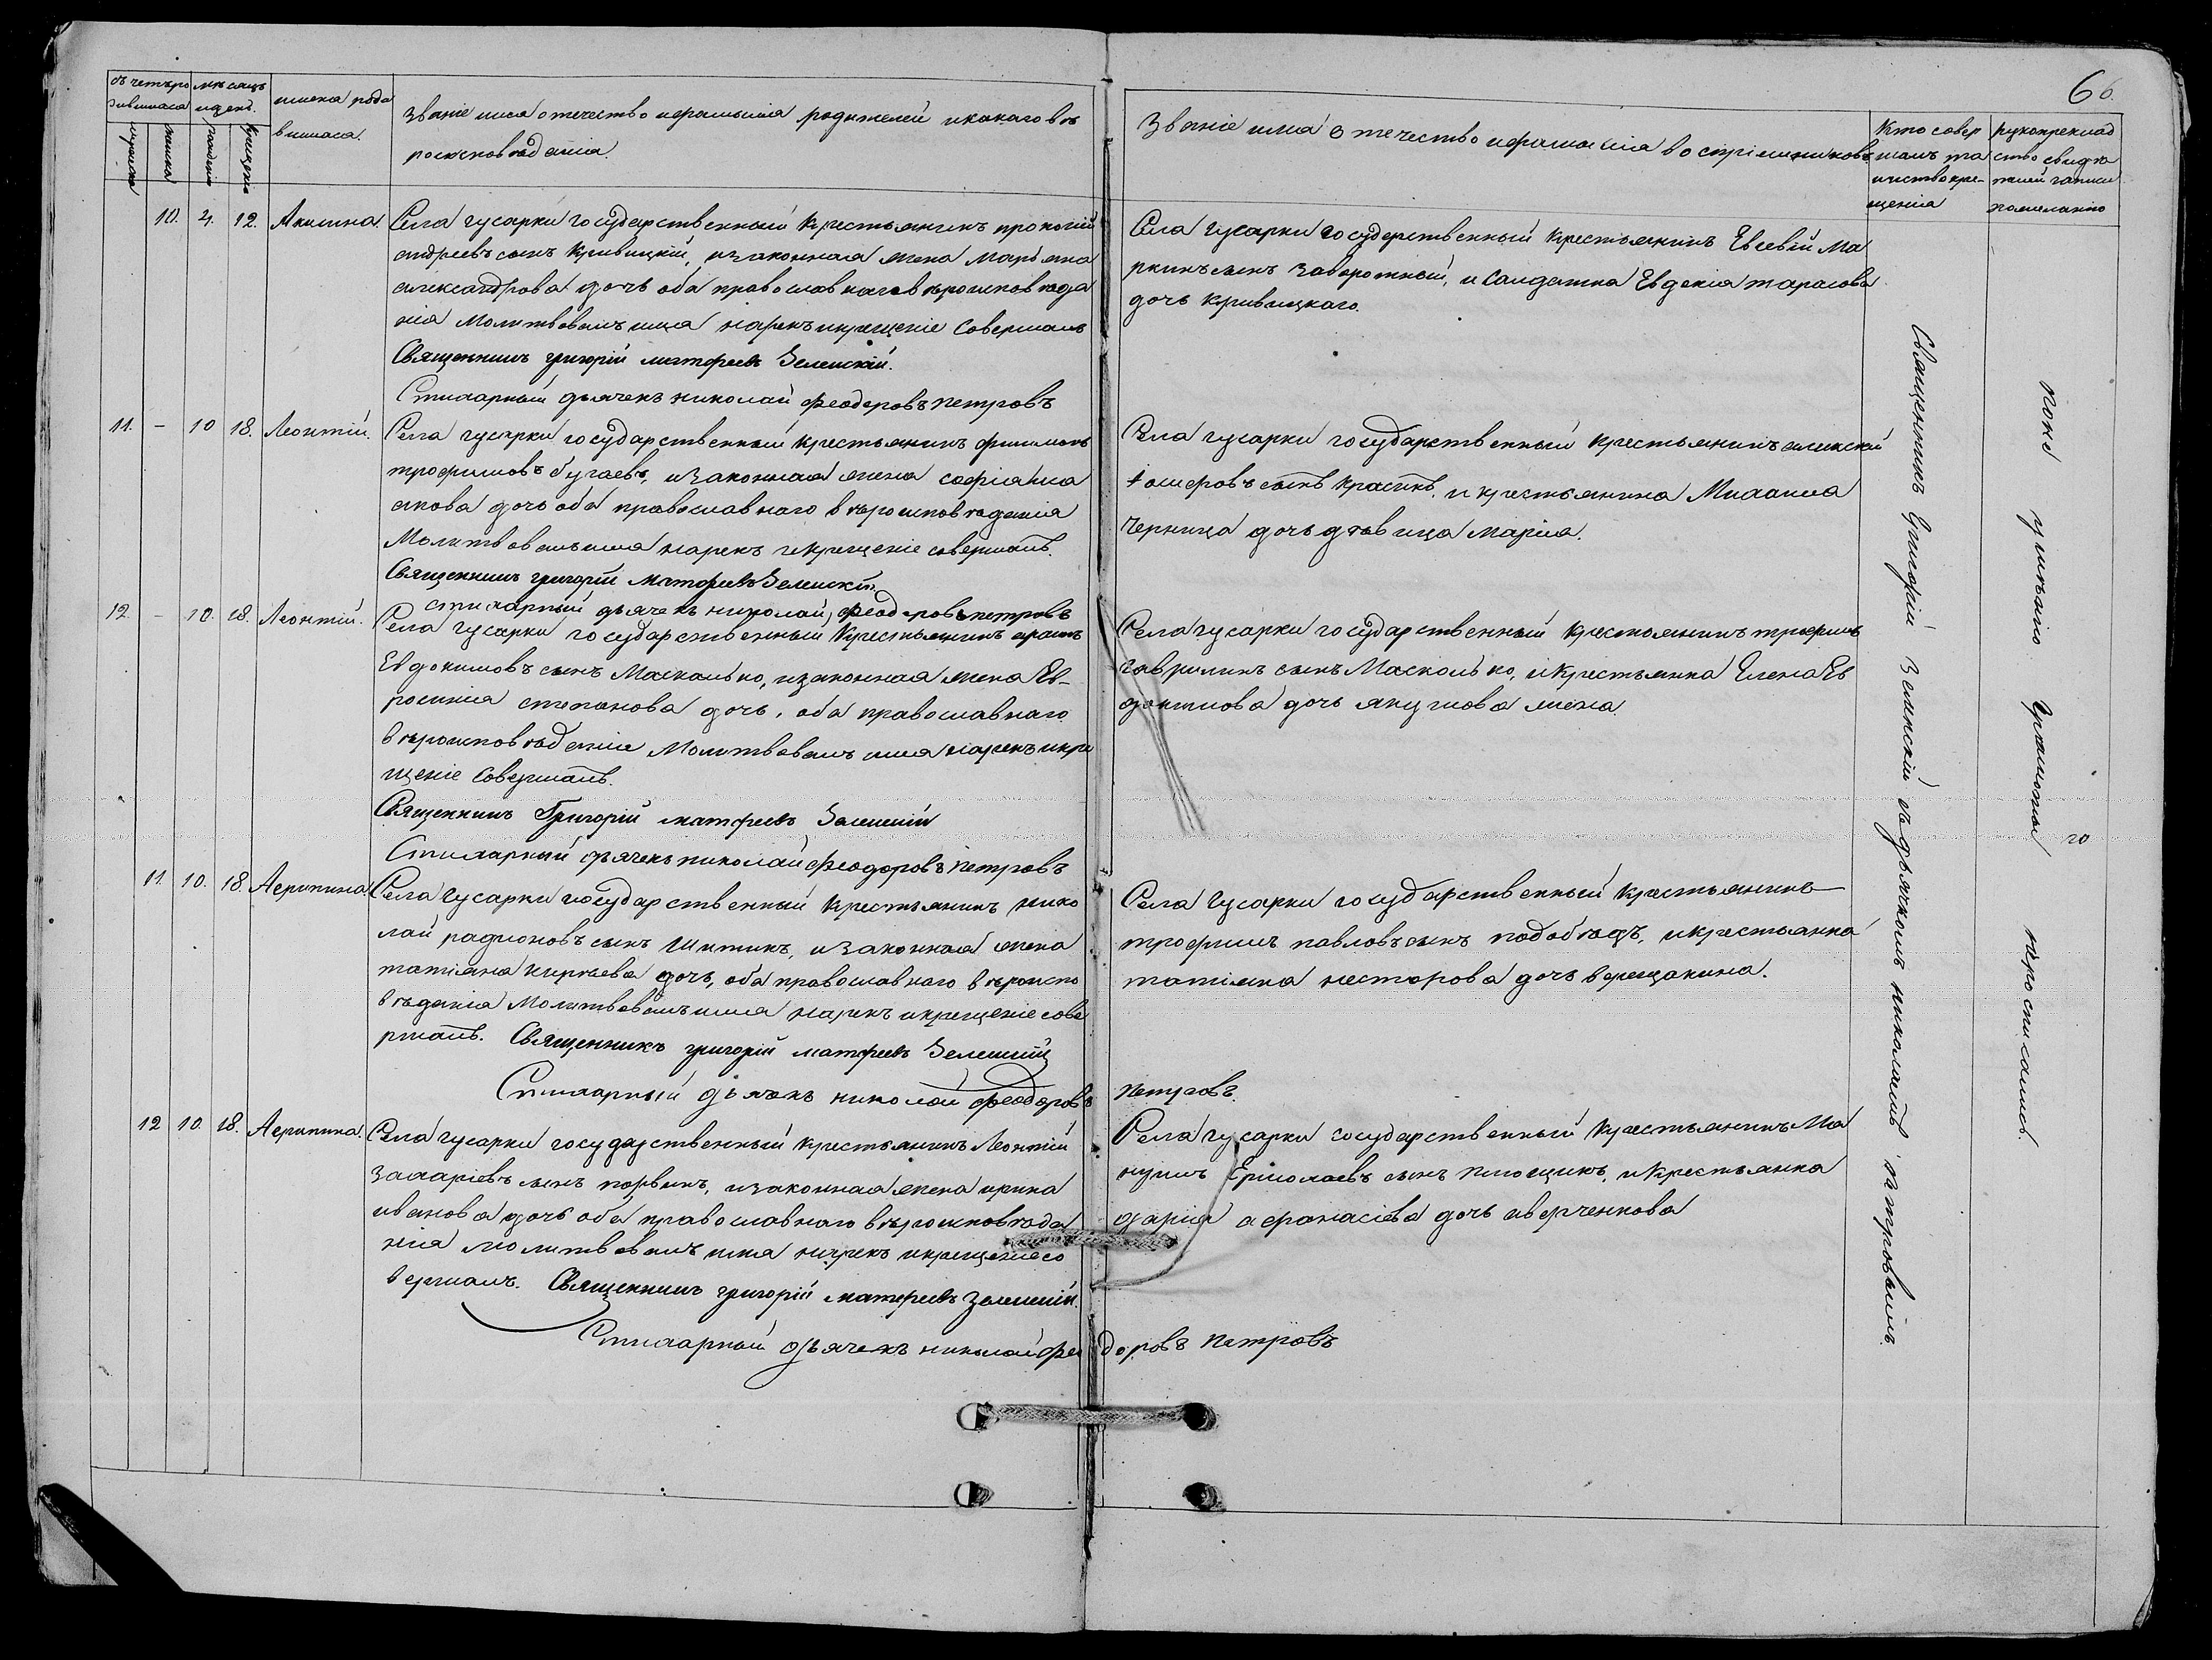 66.
съ четъро
дившихся
мѣсяцъ
и день.
имена роди
вшихся.
Званіе имя отечество и фамилія родителей и какого вѣ
роисповѣданія.
Званіе имя отечество и фамилія воспріемниковъ
Кто совер
шалъ та
инство кре-
щенія
рукоприклад
ство свидѣ
телей записи
по желанію
рожденія
крещенія
10. 4. 12. Акилина.
Села гусарки государственный крестьянинъ прокопій
андреевъ сынъ Кривицкій, и законная жена Марьяна
александрова дочь оба православнаго вѣроисповѣда
нія Молитвовалъ имя нарекъ и крещеніе Совершалъ
Священникъ григорій матфеевъ Зеленскій.
Стихарный дьячекъ николай феодоровъ петровъ
Села гусарки государственный Крестьянинъ Евсевій Ма
ркинъ сынъ Заворотный, и Салдатка Евдокія тарасова
дочь Кривицкаго.
11. - 10 18. Леонтій.
Села гусарки государственный крестьянинъ филимонъ
трофимовъ бугаевъ, и законная жена софія
якова дочь оба православнаго вѣроисповѣданія
Молитвовалъ имя нарекъ и крещеніе совершалъ.
Священникъ григорій Матфеевъ Зеленскій
стихарный дьячекъ николай феодоровъ петровъ
Села гусарки государственный крестьянинъ алексѣй
сынъ Красикъ. и крестьянина Михаила
Черница дочь дѣвица Марія.
12. - 10. 18. Леонтій.
Села гусарки государственный Крестьянинъ
Евдокимовъ сынъ Маскалько, и законная жена Ев-
росинія степанова дочь, оба православнаго
вѣроисповѣданія Молитвовалъ имя нарекъ и кре
щеніе Совершалъ.
Священникъ Григорій матфеевъ Зеленскій
Стихарный дьячекъ николай феодоровъ петровъ
Села гусарки государственный Крестьянинъ трофимъ
гавриловъ сынъ Маскалько, и Крестьянка Елена Ев
докимова дочь жена.
11. 10. 18. Агрипина.
Села гусарки государственный Крестьянинъ нико
лай радионовъ сынъ Шитикъ, и законная жена
татіяна кирѣева дочь, оба православнаго вѣроиспо
вѣданія Молитвовалъ имя нарекъ и крещеніе сове
ршалъ. Священникъ григорій матфеевъ Зеленскій
Стихарный дьячекъ николай феодоровъ петровъ
Села гусарки государственный Крестьянинъ
трофимъ павловъ сынъ подобѣдъ, и крестьянка
татіяна несторова дочь верещакина.
12 10. 18. Агрипина.
Села гусарки государственный крестьянинъ Леонтій
Захаріевъ сынъ и законная жена ирина
иванова дочь оба православнаго вѣроисповѣда
нія молитвовалъ имя нарекъ и крещеніе со
вершалъ. Священникъ григорій матфеевъ зеленскій.
Стихарный дьячекъ николай феодоровъ петровъ
Села гусарки государственный Крестьянинъ Ма
нуилъ Ермолаевъ сынъ и Крестьянка
дарія афанасіева дочь аверченкова
Священникъ Григорій Зеленскій съ дьячкомъ николаемъ петровымъ.
по не умѣнію Грамоты не росписались.